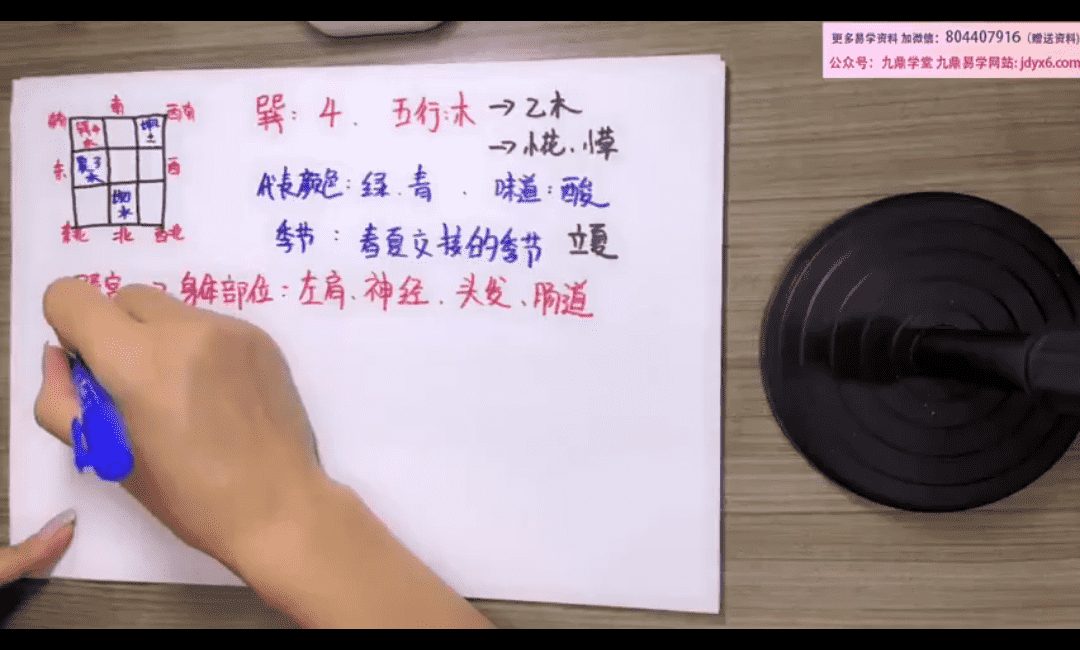 更多易学资料 加微信：804407916（赠送资料）
公众号：九鼎学堂 九鼎易学网站：jdyx6.com
南
西南
巽4
木
坤2
土
东
震3
木
西
坎
水
东北
北
西北
巽：4．五行：木 → 乙木
→ 小花、小草
代表颜色：绿、青．味道：酸
季节：春夏交接的季节 立夏
宫 → 身体部位：左肩、神经、头发、肠道